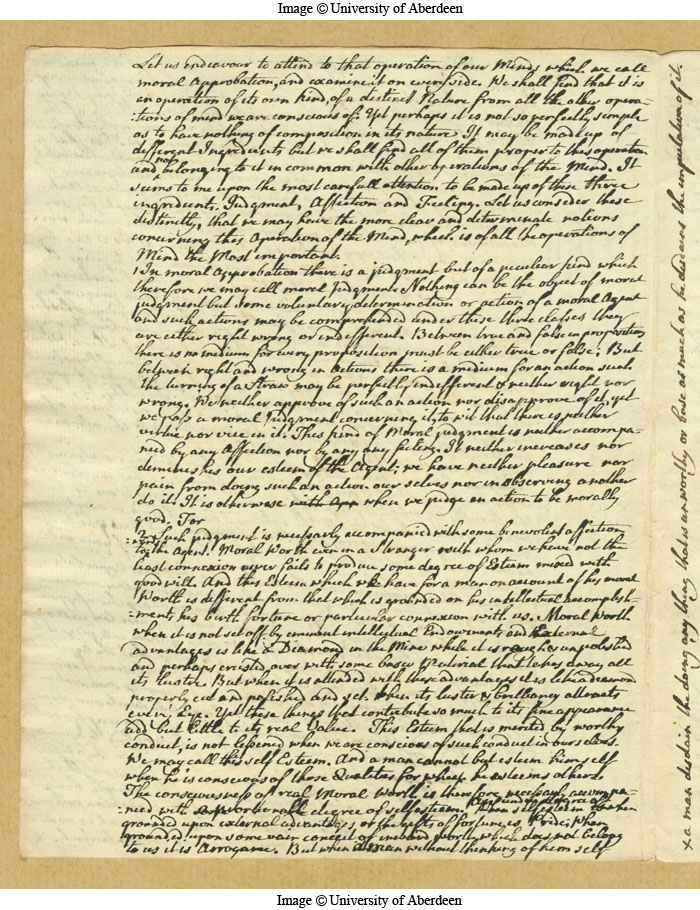 Image © University of Aberdeen
Let us endeavour to attend to that operation of our Minds which we call
moral Approbation, and examine it on every side. We shall find that it is
an operation of its own kind, of a distinct Nature from all the other opera-
:tions of mind we are conscious of. Yet perhaps it is not so perfectly simple
as to have nothing of composition in its nature It may be made up of
different Ingredients but we shall find all of them proper to this operation
and not belonging to it in common with other operations of the Mind. It
seems to me upon the most carefull attention to be made up of these three
ingredients. Judgment, Affection and Feeling. Let us consider these
distinctly, that we may have the more clear and determinate notions
concerning this Operation of the Mind, which is of all the operations of
Mind the Most important.
1 In moral Approbation there is a judgment but of a peculiar kind which
therefore we may call moral Judgment. Nothing can be the object of moral
judgment but some voluntary determination or action of a moral Agent
and such actions may be comprehended under these three classes they
are either right wrong or indifferent. Between true and false in propositions
there is no medium for every proposition must be either true or false. But
between right and wrong in Actions there is a medium for an action such
the turning of a Straw may be perfectly indifferent & neither right nor
wrong. We neither approve of such an action nor disapprove of it, yet
we pass a moral Judgment concerning it, to wit that there is neither
virtue nor vice in it. This kind of Moral judgment is neither accompa-
nied by any Affection nor by any any feeling. It neither increases nor
deminishes our esteem of the Agent; we have neither pleasure nor
pain from doing such an action our selves nor in observing another
do it. It is otherwise with App when we judge an action to be morally
good. For
2 Such judgment is necessarly accompanied with some benevolent affection
to the Agent. Moral Worth even in a Stranger with whom we have not the
least connexion never fails to produce some degree of Esteem mixed with
good will. And this Esteem which we have for a man on account of his moral
Worth is different from that which is grounded on his intellectual accomplish-
:ments, his birth fortune or particular connexion with us. Moral Worth
when it is not set off by eminent intellectual Endowments and external
advantages is like a Diamond in the Mine while it is rough & unpolished
and perhaps crusted over with some baser Material that takes away all
its lustre. But when it is attended with these advantages it is like a diamond
properly cut and polished and set. Then its lustre & brilliancy attracts
every Eye. Yet these things that contribute so much to its fine appearance
add but little to its real Value. This Esteem that is merited by worthy
conduct, is not lessened when we are conscious of such conduct in ourselves.
We may call this self Esteem. And a man cannot but esteem him self
when he is conscious of those Qualities for which he esteems others.
The consciousness of real Moral Worth is therefore necessarly accompa-
:nied with degree of self esteem. self esteem when
grounded upon external advantages or the gifts of fortune, is Pride; When
grounded upon some vain conceit of inward worth which does not belong
to us it is Arrogance. But when a Man without thinking of him self
x a man disdain the doing any thing that is unworthy or base as much as he disdains the imputation of it.
Image © University of Aberdeen